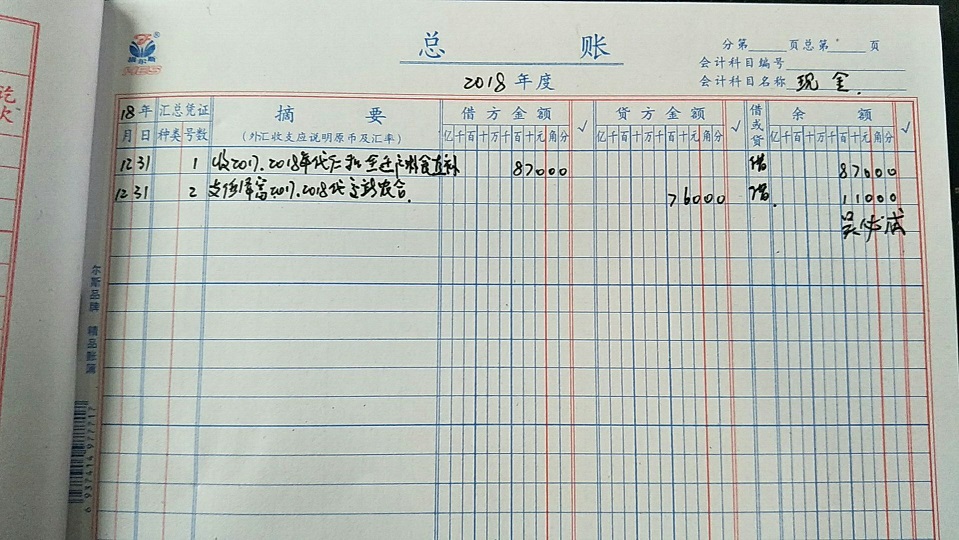 总 账
2018 年度
分第 页总第 页
会计科目编号
会计科目名称 现金.
18年 汇总凭证 摘 要 借方金额 √ 贷方金额 √ 借或贷 余 额 √
月 日 种类 号数 (外汇收支应说明原币及汇率) 亿千百十万千百十元角分 亿千百十万千百十元角分 亿千百十万千百十元角分
12 31 1 收2017、2018年代 粮食直补 87000 借 87000
12 31 2 支付 2017、2018代 农合. 76000 借. 11000
尔斯品牌 精品账簿
6 937414 977717